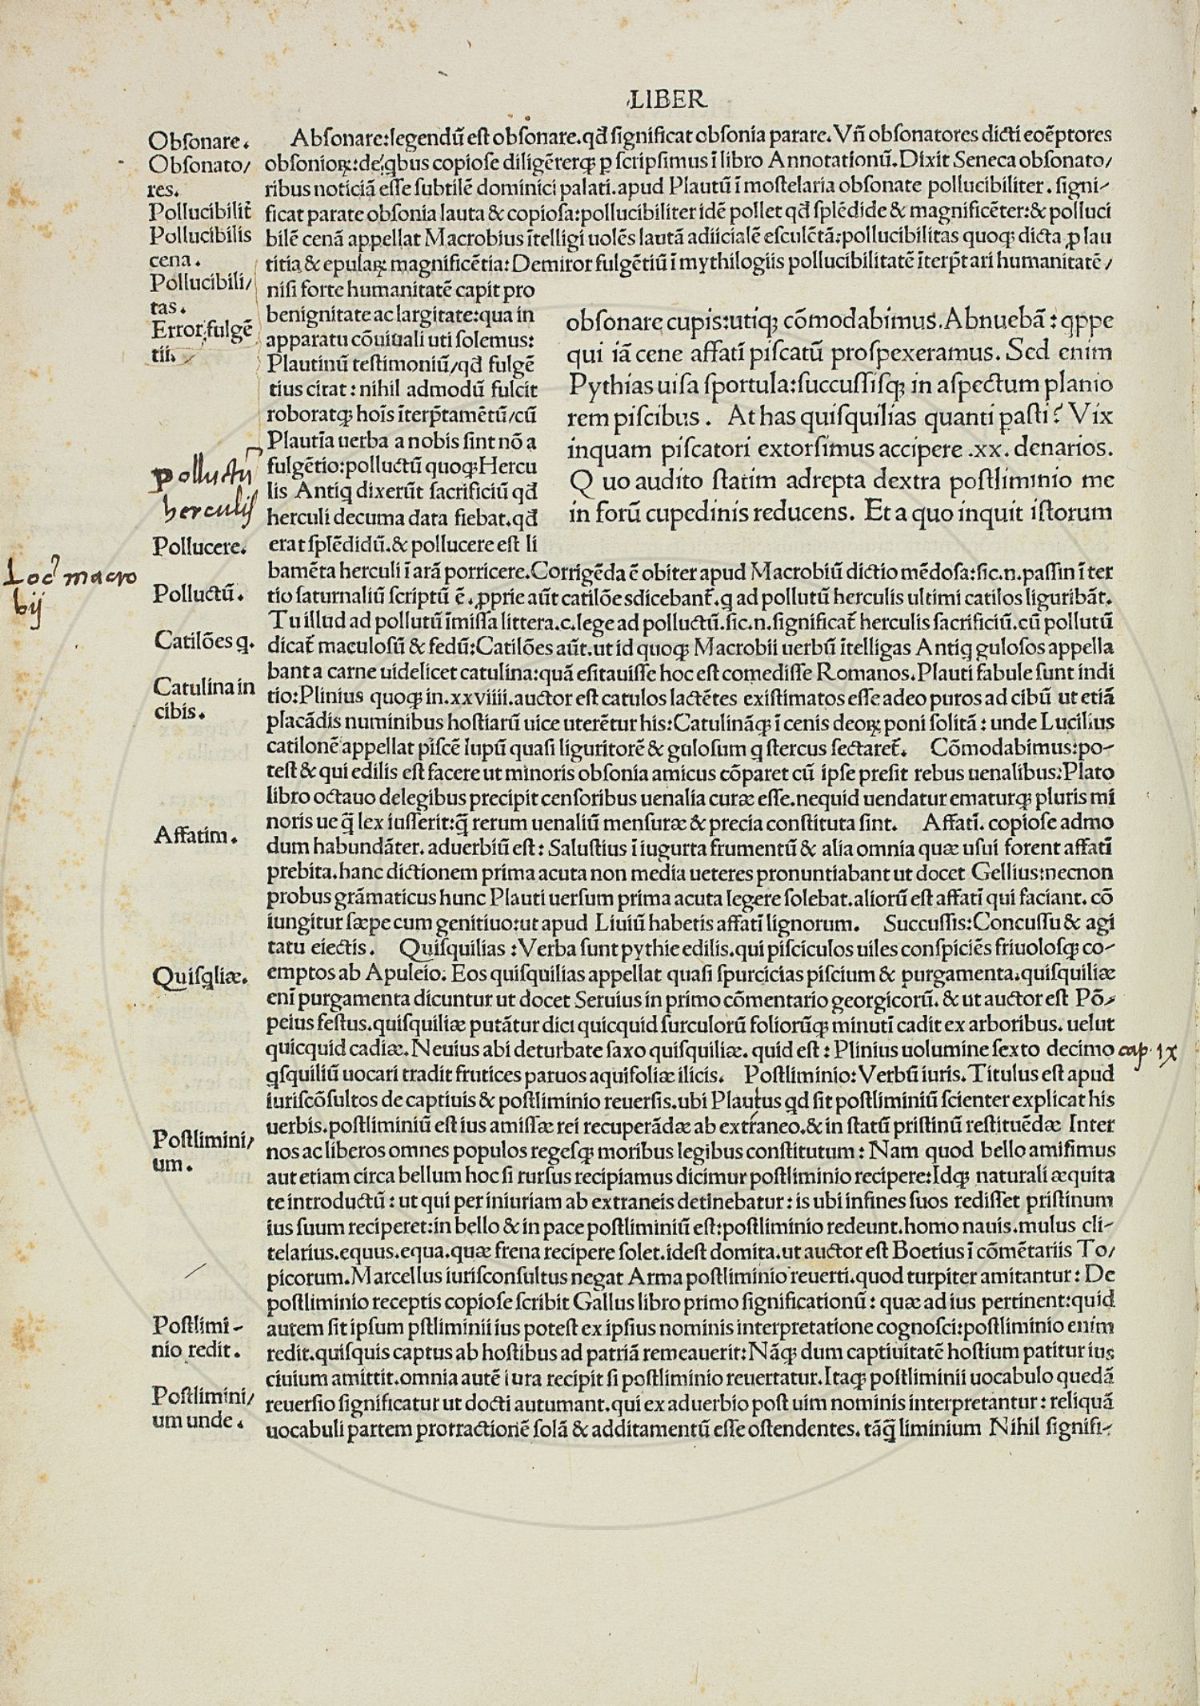 LIBER
Obsonare.
Obsonato/
res.
Pollucibilit̃
Pollucibilis
cena.
Pollucibili/
tas.
Error fulgẽ
tii.
polluctũ
herculis
Pollucere.
Locꝰ macro
bij
Polluctũ.
Catilões q̃.
Catulina in
cibis.
Affatim.
Quisq̃liæ.
Postlimini/
um.
Postlimi-
nio redit.
Postlimini/
um unde.
Absonare:legendũ est obsonare.qđ significat obsonia parare.Vñ obsonatores dicti eoẽptores
obsonioꝝ:de q̃bus copiose diligẽterqꝫ ꝑscripsimus ĩ libro Annotationũ.Dixit Seneca obsonato/
ribus noticiã esse subtilẽ dominici palati.apud Plautũ ĩ mostelaria obsonate pollucibiliter.signi-
ficat parate obsonia lauta & copiosa:pollucibiliter idẽ pollet qđ splẽdide & magnificẽter:& polluci
bilẽ cenã appellat Macrobius ĩtelligi uolẽs lautã adiicialẽ esculẽtã:pollucibilitas quoqꝫ dicta ꝓ lau
titia & epulaꝝ magnificẽtia:Demiror fulgẽtiũ ĩ mythilogiis pollucibilitatẽ ĩterp̃tari humanitatẽ/
nisi forte humanitatẽ capit pro
benignitate ac largitate:qua in
apparatu cõuiuali uti solemus:
Plautinũ testimoniũ/qđ fulgẽ
tius citat:nihil admodũ fulcit
roboratqꝫ hoĩs ĩterp̃tamẽtũ/cũ
Plautĩa uerba a nobis sint nõ a
fulgẽtio:polluctũ quoqꝫ Hercu
lis Antiq̃ dixerũt sacrificiũ qđ
herculi decuma data fiebat.qđ
erat splẽdidũ.& pollucere est li
obsonare cupis:utiqꝫ cõmodabimus.Abnuebã:q̃ppe
qui iã cene affatĩ piscatũ prospexeramus. Sed enim
Pythias uisa sportula:succussisqꝫ in aspectum planio
rem piscibus. At has quisquilias quanti pasti? Vix
inquam piscatori extorsimus accipere .xx. denarios.
Quo audito statim adrepta dextra postliminio me
in forũ cupedinis reducens. Et a quo inquit istorum
bamẽta herculi ĩ arã porricere.Corrigẽda ẽ obiter apud Macrobiũ dictio mẽdosa:sic.n.passĩn ĩ ter
tio saturnaliũ scriptũ ẽ.ꝓprie aũt catilões dicebant̃.q̃ ad pollutũ herculis ultimi catilos liguribãt.
Tu illud ad pollutũ ĩmissa littera.c.lege ad polluctũ.sic.n.significat̃ herculis sacrificiũ.cũ pollutũ
dicat̃ maculosũ & fedũ:Catilões aũt.ut id quoqꝫ Macrobii uerbũ ĩtelligas Antiq̃ gulosos appella
bant a carne uidelicet catulina:quã esitauisse hoc est comedisse Romanos.Plauti fabule sunt indi
tio:Plinius quoqꝫ in.xxviiii.auctor est catulos lactẽtes existimatos esse adeo puros ad cibũ ut etiã
placãdis numinibus hostiarũ uice uterẽtur his:Catulinãqꝫ ĩ cenis deoꝝ poni solitã:unde Lucilius
catilonẽ appellat piscẽ lupũ quasi liguritorẽ & gulosum q̃ stercus sectaret̃. Cõmodabimus:po-
test & qui edilis est facere ut minoris obsonia amicus cõparet cũ ipse presit rebus uenalibus:Plato
libro octauo delegibus precipit censoribus uenalia curæ esse.nequid uendatur ematurqꝫ pluris mi
noris ue q̃ lex iusserit:q̃ rerum uenaliũ mensuræ & precia constituta sint. Affatĩ.copiose admo
dum habundãter.aduerbiũ est:Salustius ĩ iugurta frumentũ & alia omnia quæ usui forent affatĩ
prebita.hanc dictionem prima acuta non media ueteres pronuntiabant ut docet Gellius:necnon
probus grãmaticus hunc Plauti uersum prima acuta legere solebat.aliorũ est affatĩ qui faciant.cõ
iungitur sæpe cum genitiuo:ut apud Liuiũ habetis affatĩ lignorum. Succussis:Concussu & agi
tatu eiectis. Quisquilias:Verba sunt pythie edilis.qui pisciculos uiles conspiciẽs friuolosqꝫ co-
emptos ab Apuleio.Eos quisquilias appellat quasi spurcicias piscium & purgamenta.quisquiliæ
enĩ purgamenta dicuntur ut docet Seruius in primo cõmentario georgicorũ.& ut auctor est Põ-
peius festus.quisquiliæ putãtur dici quicquid surculorũ foliorũqꝫ minutĩ cadit ex arboribus.uelut
quicquid cadiæ.Neuius abi deturbate saxo quisquiliæ.quid est:Plinius uolumine sexto decimo
cap. ix
q̃squiliũ uocari tradit frutices paruos aquifoliæ ilicis. Postliminio:Verbũ iuris.Titulus est apud
iuriscõsultos de captiuis & postliminio reuersis.ubi Plautus qđ sit postliminiũ scienter explicat his
uerbis.postliminiũ est ius amissæ rei recuperãdæ ab extraneo.& in statũ pristinũ restituẽdæ Inter
nos ac liberos omnes populos regesqꝫ moribus legibus constitutum:Nam quod bello amisimus
aut etiam circa bellum hoc si rursus recipiamus dicimur postliminio recipere:Idqꝫ naturali æquita
te introductũ:ut qui per iniuriam ab extraneis detinebatur:is ubi infines suos redisset pristinum
ius suum reciperet:in bello & in pace postliminiũ est:postliminio redeunt.homo nauis.mulus cli-
telarius.equus.equa.quæ frena recipere solet.idest domita.ut auctor est Boetius ĩ cõmẽtariis To/
picorum.Marcellus iurisconsultus negat Arma postliminio reuerti.quod turpiter amitantur:De
postliminio receptis copiose scribit Gallus libro primo significationũ:quæ ad ius pertinent:quid
autem sit ipsum pstliminii ius potest ex ipsius nominis interpretatione cognosci:postliminio enim
redit.quisquis captus ab hostibus ad patriã remeauerit:Nãqꝫ dum captiuitatẽ hostium patitur ius
ciuium amittit.omnia autẽ iura recipit si postliminio reuertatur.Itaqꝫ postliminii uocabulo quedã
reuersio significatur ut docti autumant.qui ex aduerbio post uim nominis interpretantur:reliquã
uocabuli partem protractionẽ solã & additamentũ esse ostendentes.tãq̃ liminium Nihil signifi-